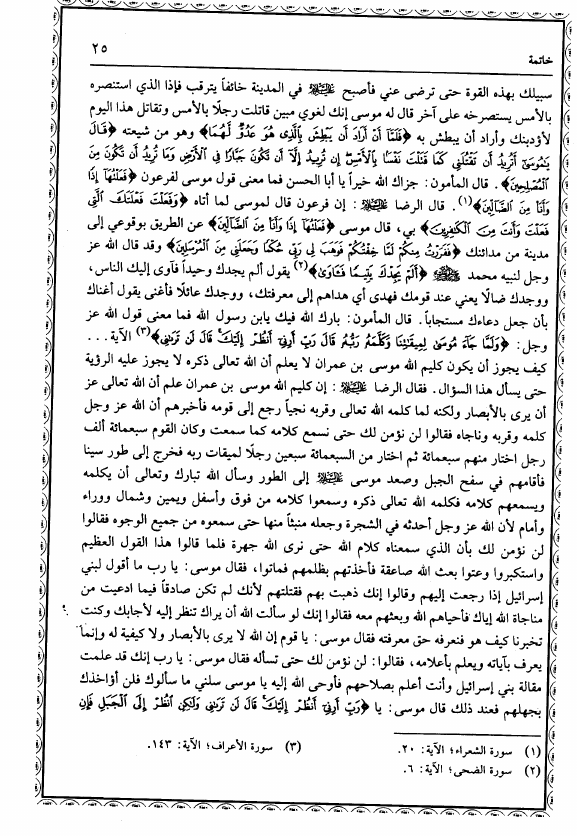 خاتمة
٢٥
سبيلك بهذه القوة حتى ترضى عني فأصبح عليه السلام في المدينة خائفاً يترقب فإذا الذي استنصره
بالأمس يستصرخه على آخر قال له موسى إنك لغوي مبين قاتلت رجلًا بالأمس وتقاتل هذا اليوم
لأؤدبنك وأراد أن يبطش به ﴿فَلَمَّا أَنْ أَرَادَ أَن يَبْطِشَ بِالَّذِي هُوَ عَدُوٌّ لَّهُمَا﴾ وهو من شيعته ﴿قَالَ
يَمُوسَىٰ أَتُرِيدُ أَن تَقْتُلَنِي كَمَا قَتَلْتَ نَفْسًا بِالْأَمْسِ إِن تُرِيدُ إِلَّا أَن تَكُونَ جَبَّارًا فِي الْأَرْضِ وَمَا تُرِيدُ أَن تَكُونَ مِنَ
الْمُصْلِحِينَ﴾. قال المأمون: جزاك الله خيراً يا أبا الحسن فما معنى قول موسى لفرعون ﴿فَعَلْتُهَا إِذًا
وَأَنَا مِنَ الضَّالِّينَ﴾(١). قال الرضا عليه السلام: إن فرعون قال لموسى لما أتاه ﴿وَفَعَلْتَ فَعْلَتَكَ الَّتِي
فَعَلْتَ وَأَنتَ مِنَ الْكَافِرِينَ﴾ بي، قال موسى ﴿فَعَلْتُهَا إِذًا وَأَنَا مِنَ الضَّالِّينَ﴾ عن الطريق بوقوعي إلى
مدينة من مدائنك ﴿فَفَرَرْتُ مِنكُمْ لَمَّا خِفْتُكُمْ فَوَهَبَ لِي رَبِّي حُكْمًا وَجَعَلَنِي مِنَ الْمُرْسَلِينَ﴾ وقد قال الله عز
وجل لنبيه محمد ﷺ ﴿أَلَمْ يَجِدْكَ يَتِيمًا فَآوَىٰ﴾(٢) يقول ألم يجدك وحيداً فآوى إليك الناس،
ووجدك ضالًا يعني عند قومك فهدى أي هداهم إلى معرفتك، ووجدك عائلًا فأغنى يقول أغناك
بأن جعل دعاءك مستجاباً. قال المأمون: بارك الله فيك يابن رسول الله فما معنى قول الله عز
وجل: ﴿وَلَمَّا جَاءَ مُوسَىٰ لِمِيقَاتِنَا وَكَلَّمَهُ رَبُّهُ قَالَ رَبِّ أَرِنِي أَنظُرْ إِلَيْكَ قَالَ لَن تَرَانِي﴾(٣) الآية...
كيف يجوز أن يكون كليم الله موسى بن عمران لا يعلم أن الله تعالى ذكره لا يجوز عليه الرؤية
حتى يسأل هذا السؤال. فقال الرضا عليه السلام: إن كليم الله موسى بن عمران علم أن الله تعالى عز
أن يرى بالأبصار ولكنه لما كلمه الله تعالى وقربه نجياً رجع إلى قومه فأخبرهم أن الله عز وجل
كلمه وقربه وناجاه فقالوا لن نؤمن لك حتى نسمع كلامه كما سمعت وكان القوم سبعمائة ألف
رجل اختار منهم سبعمائة ثم اختار من السبعمائة سبعين رجلًا لميقات ربه فخرج إلى طور سينا
فأقامهم في سفح الجبل وصعد موسى عليه السلام إلى الطور وسأل الله تبارك وتعالى أن يكلمه
ويسمعهم كلامه فكلمه الله تعالى ذكره وسمعوا كلامه من فوق وأسفل ويمين وشمال ووراء
وأمام لأن الله عز وجل أحدثه في الشجرة وجعله منبثاً منها حتى سمعوه من جميع الوجوه فقالوا
لن نؤمن لك بأن الذي سمعناه كلام الله حتى نرى الله جهرة فلما قالوا هذا القول العظيم
واستكبروا وعتوا بعث الله صاعقة فأخذتهم بظلمهم فماتوا، فقال موسى: يا رب ما أقول لبني
إسرائيل إذا رجعت إليهم وقالوا إنك ذهبت بهم فقتلتهم لأنك لم تكن صادقاً فيما ادعيت من
مناجاة الله إياك فأحياهم الله وبعثهم معه فقالوا إنك لو سألت الله أن يراك تنظر إليه لأجابك وكنت
تخبرنا كيف هو فنعرفه حق معرفته فقال موسى: يا قوم إن الله لا يرى بالأبصار ولا كيفية له وإنما
يعرف بآياته ويعلم بأعلامه، فقالوا: لن نؤمن لك حتى تسأله فقال موسى: يا رب إنك قد علمت
مقالة بني إسرائيل وأنت أعلم بصلاحهم فأوحى الله إليه يا موسى سلني ما سألوك فلن أؤاخذك
بجهلهم فعند ذلك قال موسى: يا ﴿رَبِّ أَرِنِي أَنظُرْ إِلَيْكَ قَالَ لَن تَرَانِي وَلَكِنِ انظُرْ إِلَى الْجَبَلِ فَإِنِ
(١) سورة الشعراء؛ الآية: ٢٠.
(٢) سورة الضحى؛ الآية: ٦.
(٣) سورة الأعراف؛ الآية: ١٤٣.